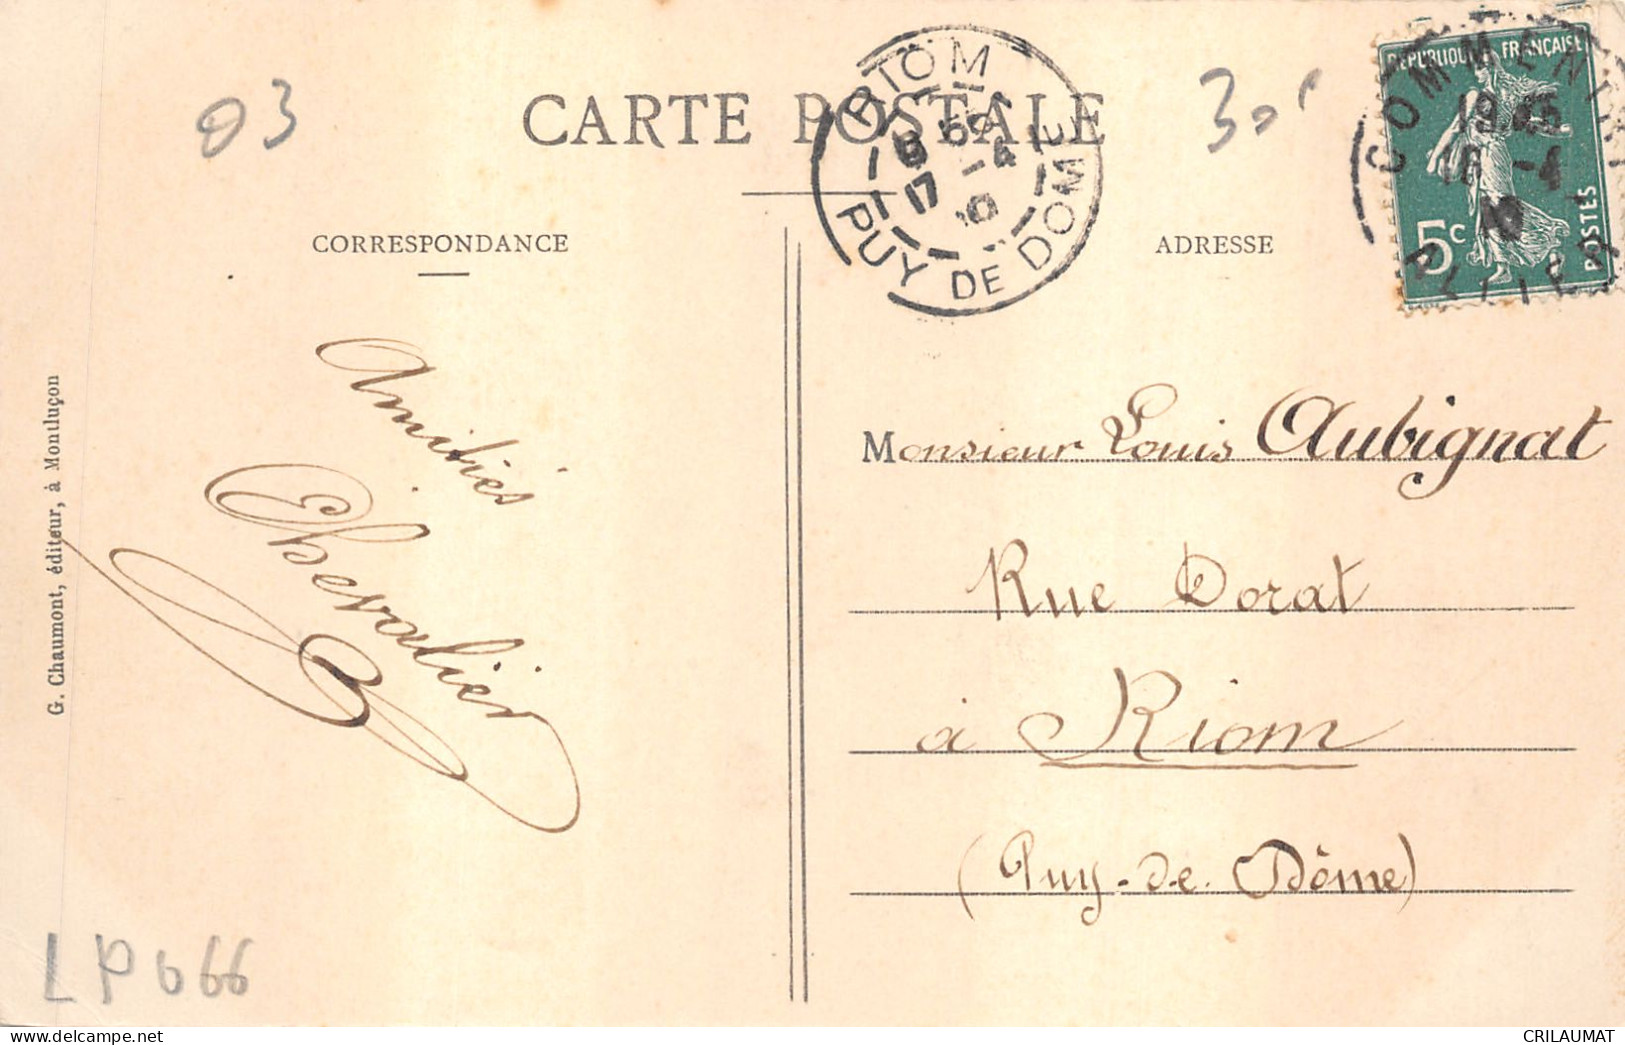 03
CARTE POSTALE
CORRESPONDANCE
ADRESSE
RIOM
8 50
17 - 4
10
PUY DE DOME
RÉPUBLIQUE FRANÇAISE
5c
POSTES
COMMENTRY
19 45
16 - 4
10
ALLIER
G. Chaumont, éditeur, à Montluçon
Amitiés
Chevalier
Monsieur Louis Aubignat
Rue Dorat
à Riom
(Puy-de-Dôme)
CRILAUMAT
www.delcampe.net